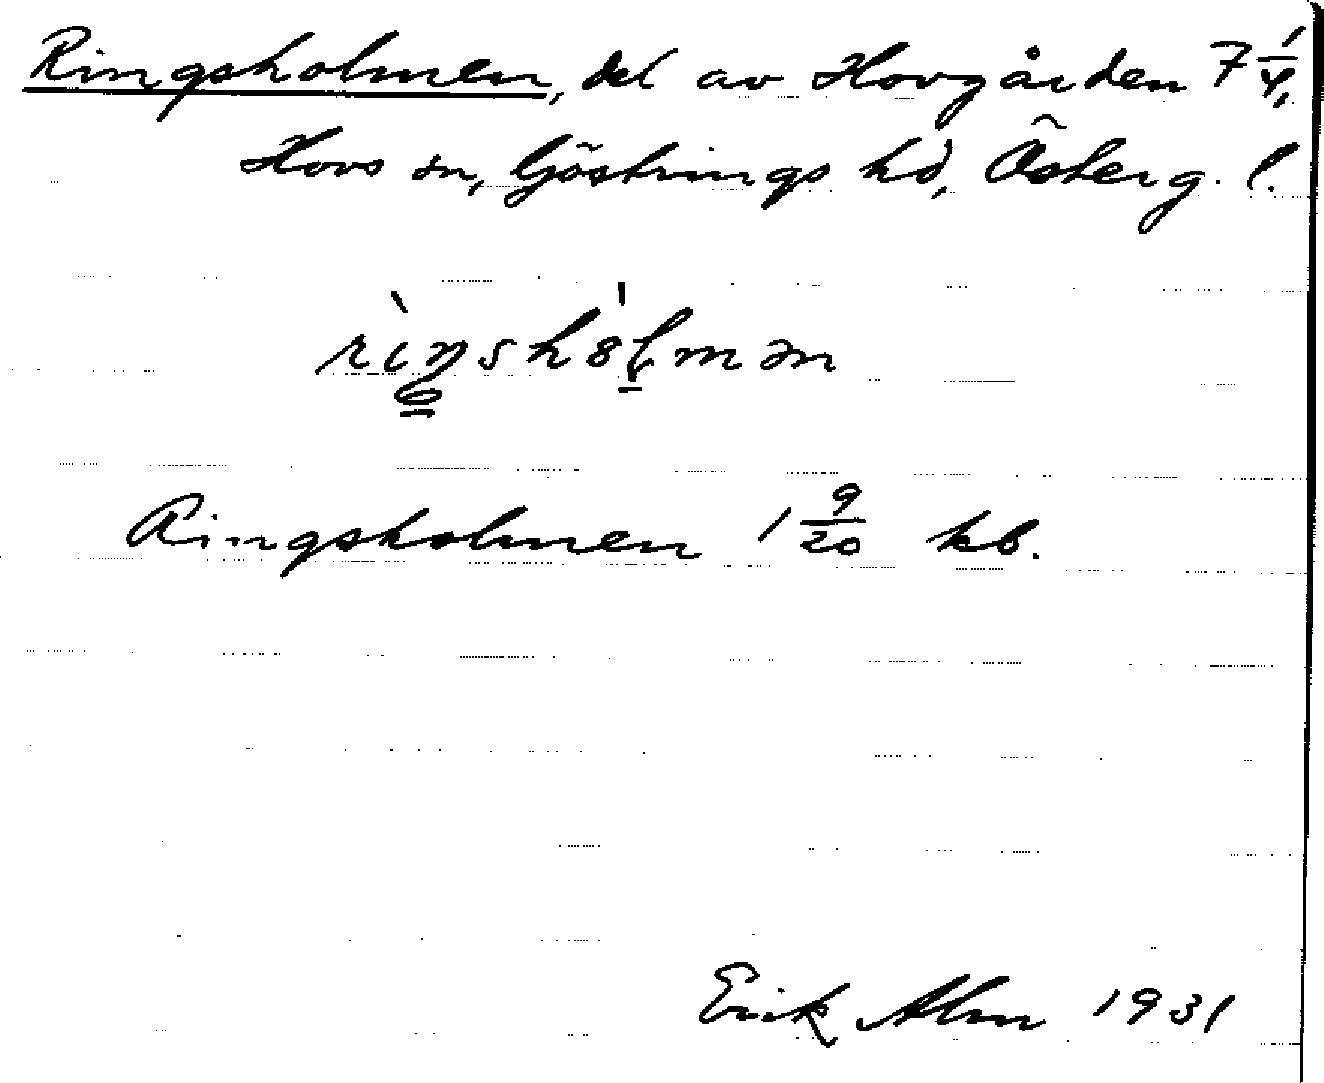 Ringsholmen, del av Hovgården 7 1/4,
Hovs sn, Göstrings hd, Österg. l.
rìŋshólmən
Ringsholmen 1 9/20 kb.
Erik Alm 1931